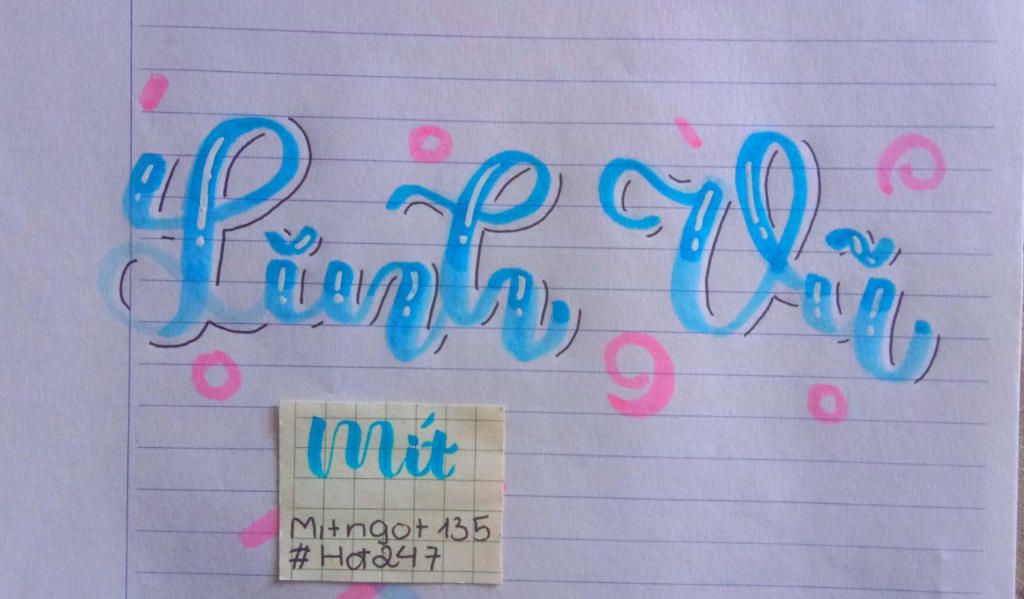 Lĩnh Vũ
Mít
Mitngot 135
# Hot247